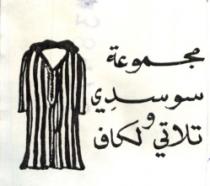 مجموعة
سوسدِي
و
تلاتي لكاف